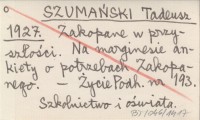 SZUMAŃSKI Tadeusz
1927. Zakopane w przy-
szłości. Na marginesie an-
kiety o potrzebach Zakopa-
nego. – Życie Podh. nr 193.
Szkolnictwo i oświata.